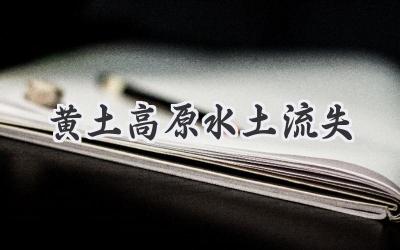 黄土高原水土流失